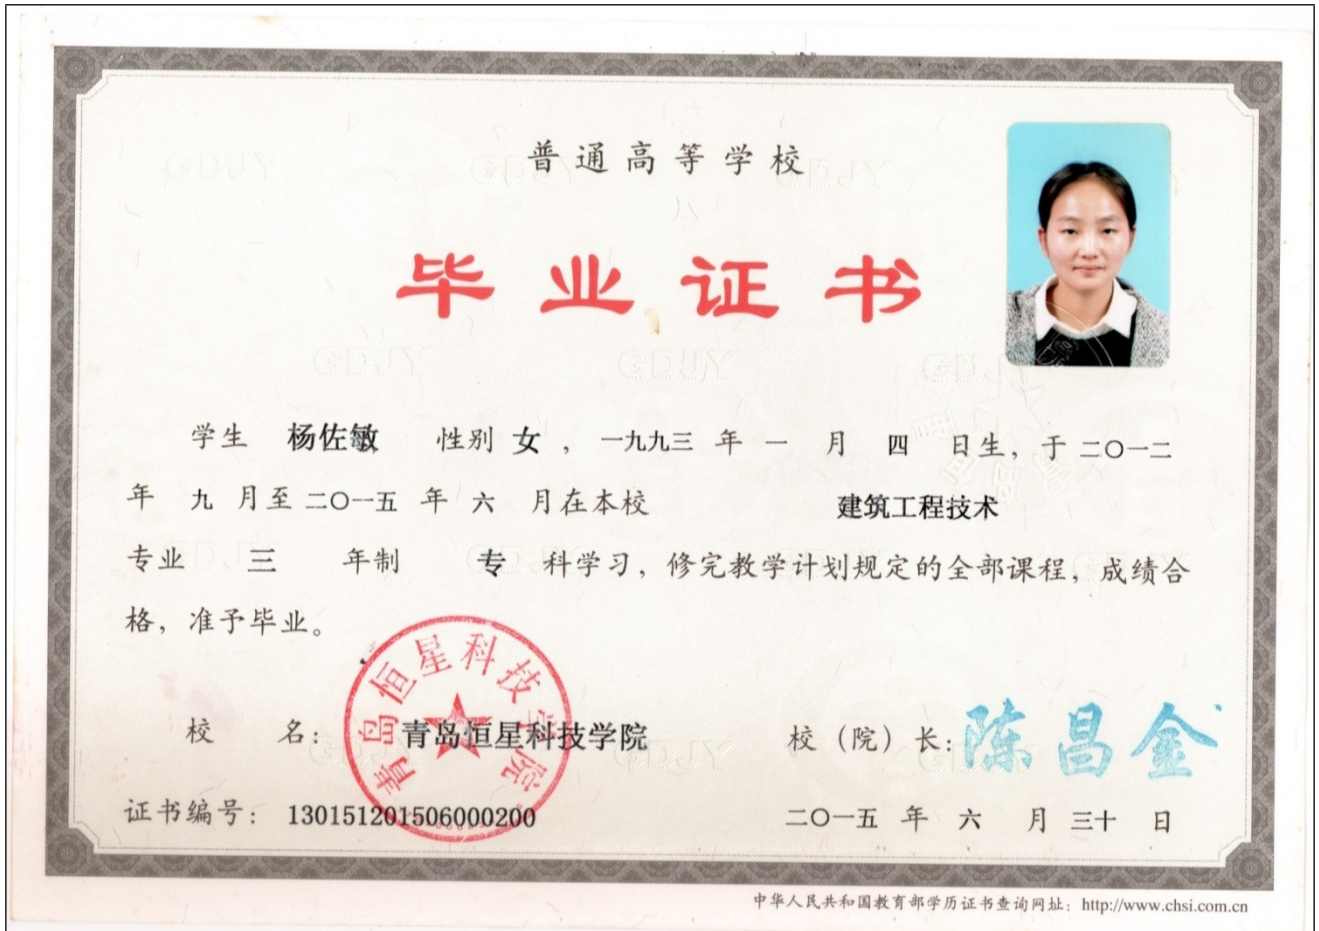 普通高等学校
毕业证书
学生 杨佐敏 性别 女 ， 一九九三 年 一 月 四 日生，于 二〇一二
年 九 月至 二〇一五 年 六 月在本校 建筑工程技术
专业 三 年制 专 科学习，修完教学计划规定的全部课程，成绩合
格，准予毕业。
青岛恒星科技学院
校 名： 青岛恒星科技学院 校（院）长：陈昌金
证书编号： 130151201506000200 二〇一五 年 六 月 三十 日
中华人民共和国教育部学历证书查询网址：http://www.chsi.com.cn